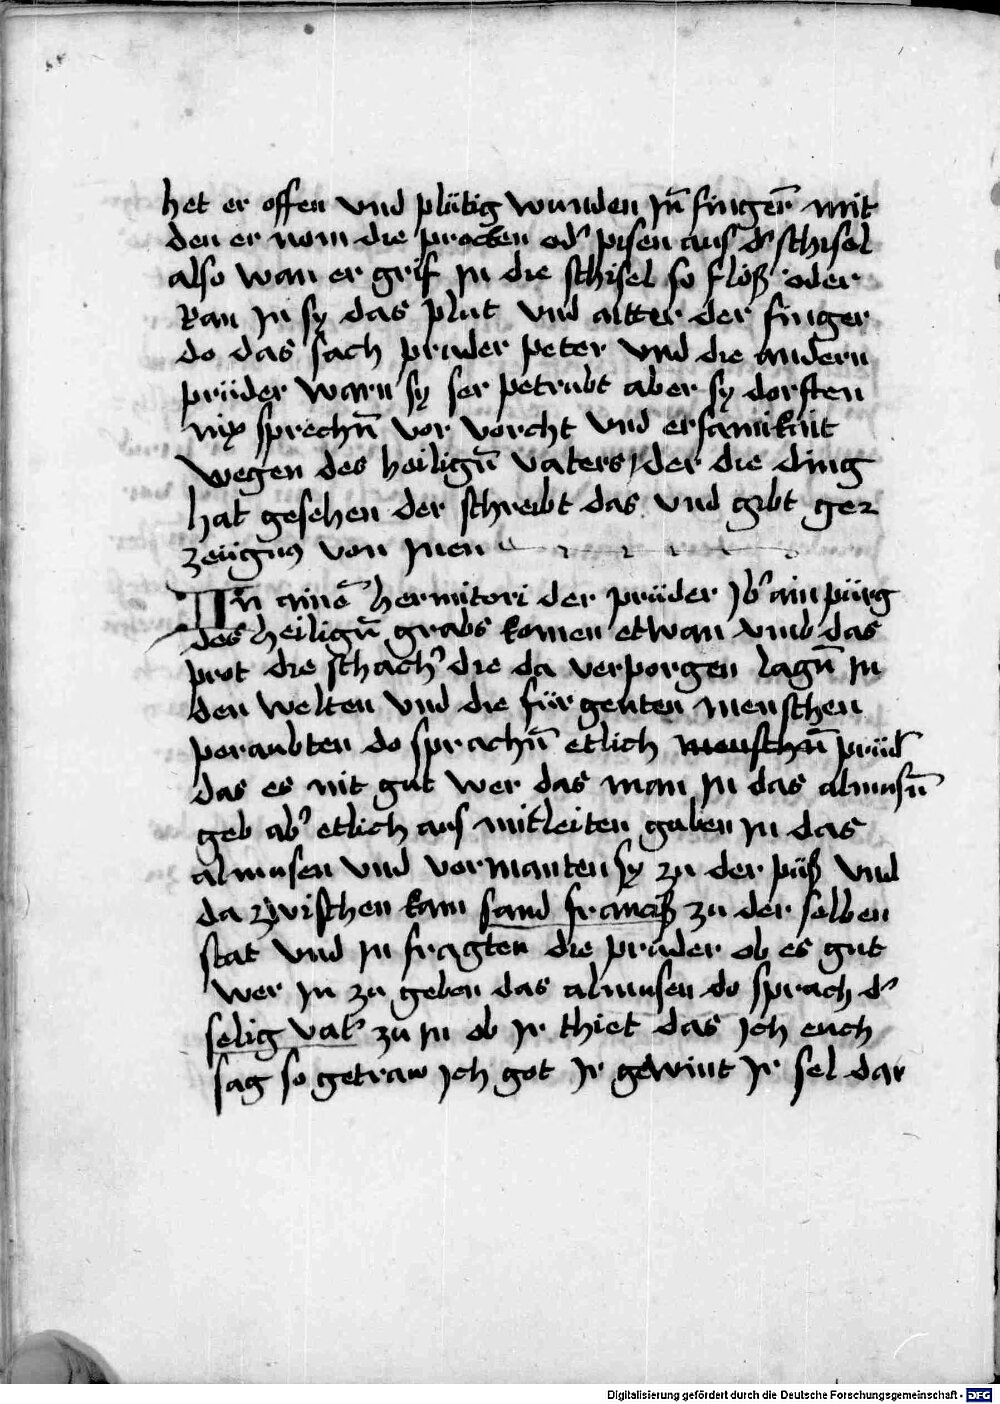 het er offen vnd plütig wunden Jn̄ finger̄ mit
den er nom die procken od' pisen aus d' schisel
also wan er grif In die schisel so flöß oder
Ran In sy das plut vnd aitter der finger
do das sach pruder peter vnd die andern
prüder warn sy ser petrubt aber sy dorsten
nix sprechn̄ vor vorcht vnd ersamikait
wegen des heilign̄ vaters / der die ding
hat gesehen der schreibt das vnd gibt ge=
zeügnus von Inen
In aine̅ hermitori der prüder Jb' ain pürg
des heilign̄ grabs komen etwan vmb das
prot die schach' die da verporgen lagn̄ In
den welten vnd die für genten menschen
peraubten do sprachn̄ etlich menschn̄ prüd'
das es nit gut wer das man In das almusn̄
geb ab' etlich aus mitleiten gaben In das
almusen vnd vormanten sy zu der püß vnd
da zwischen kam sand francisß zu der selben
stat vnd In fragten die pruder ob es gut
wer In zu geben das almusen do sprach d'
selig vat' zu In ob Ir thiet das Ich euch
sag so getraw Ich got Ir gewint Ir sel dar
Digitalisierung gefördert durch die Deutsche Forschungsgemeinschaft - DFG